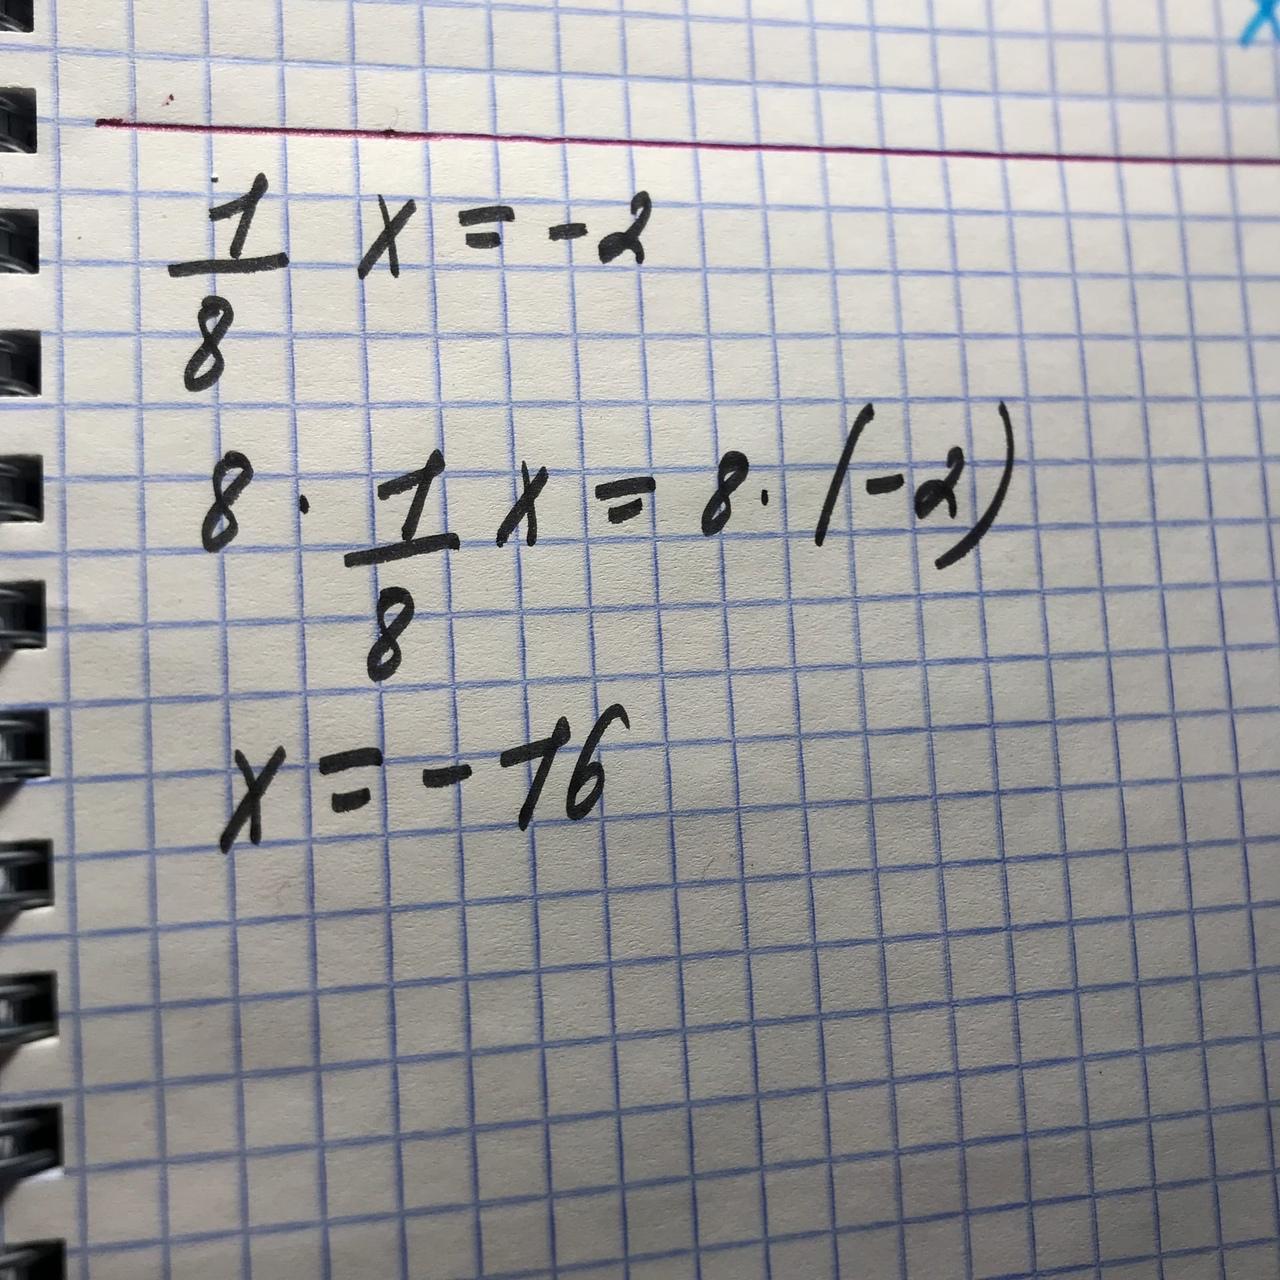 1/8 x = -2
8 · 1/8 x = 8 · (-2)
x = -16